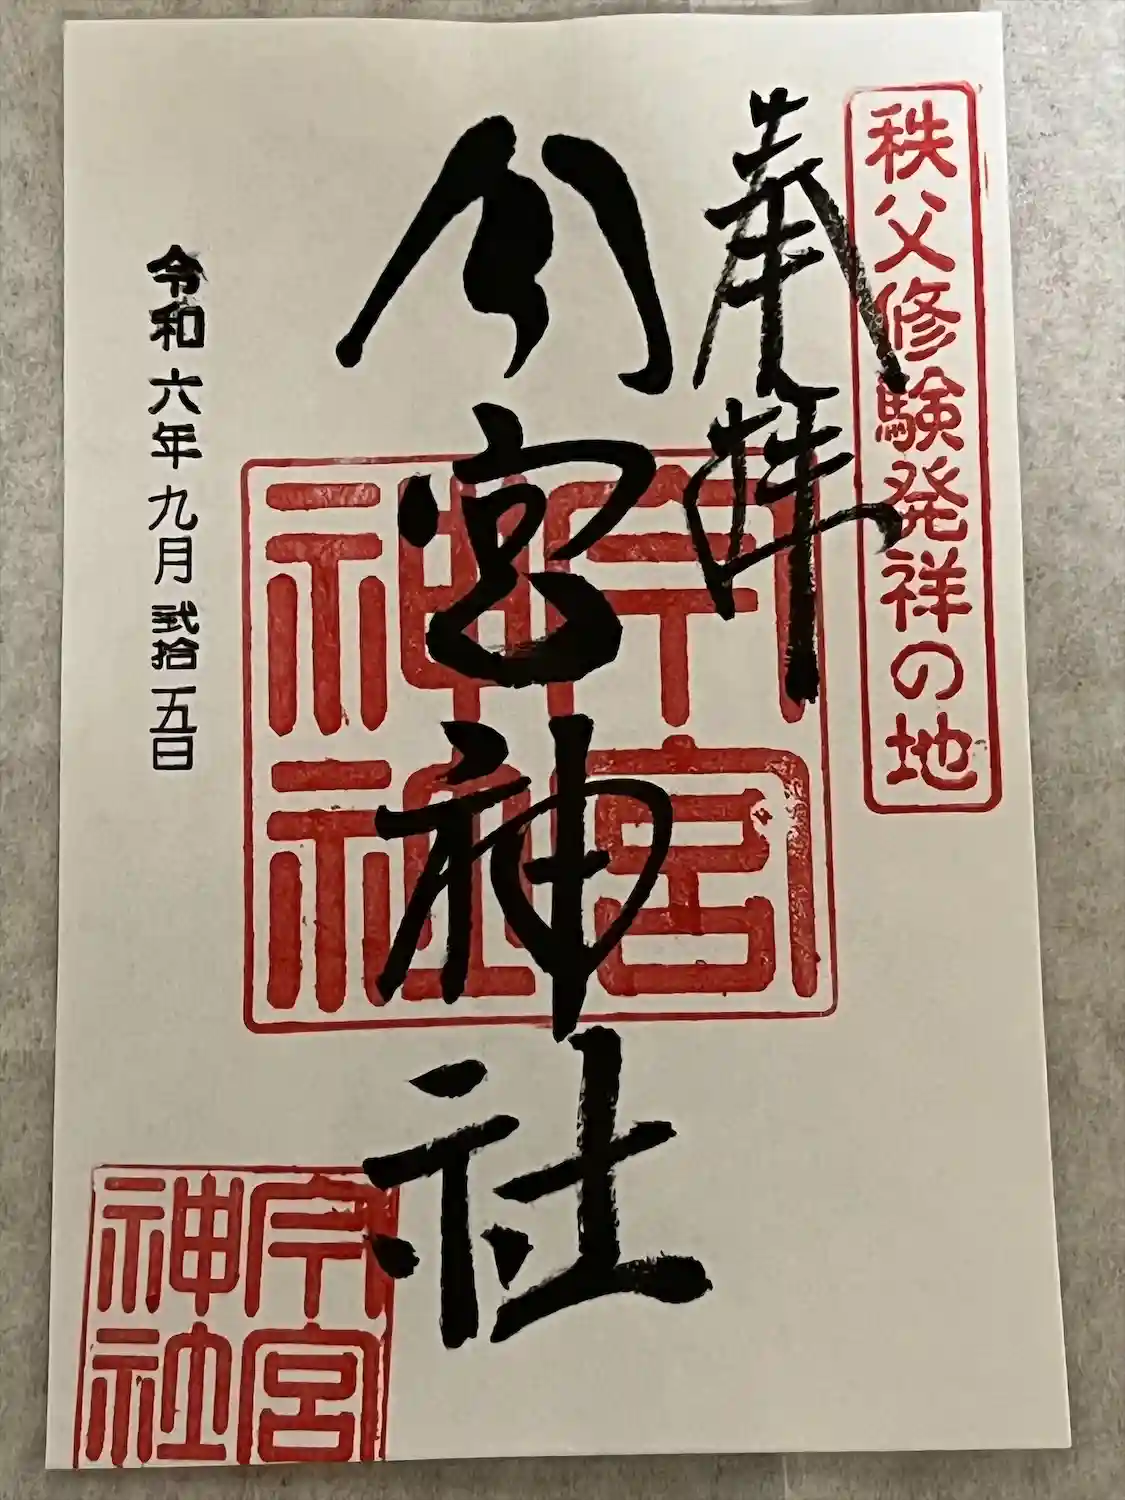 秩父修験発祥の地
奉拝
今宮神社
今宮
神社
令和六年九月弐拾五日
今宮
神社